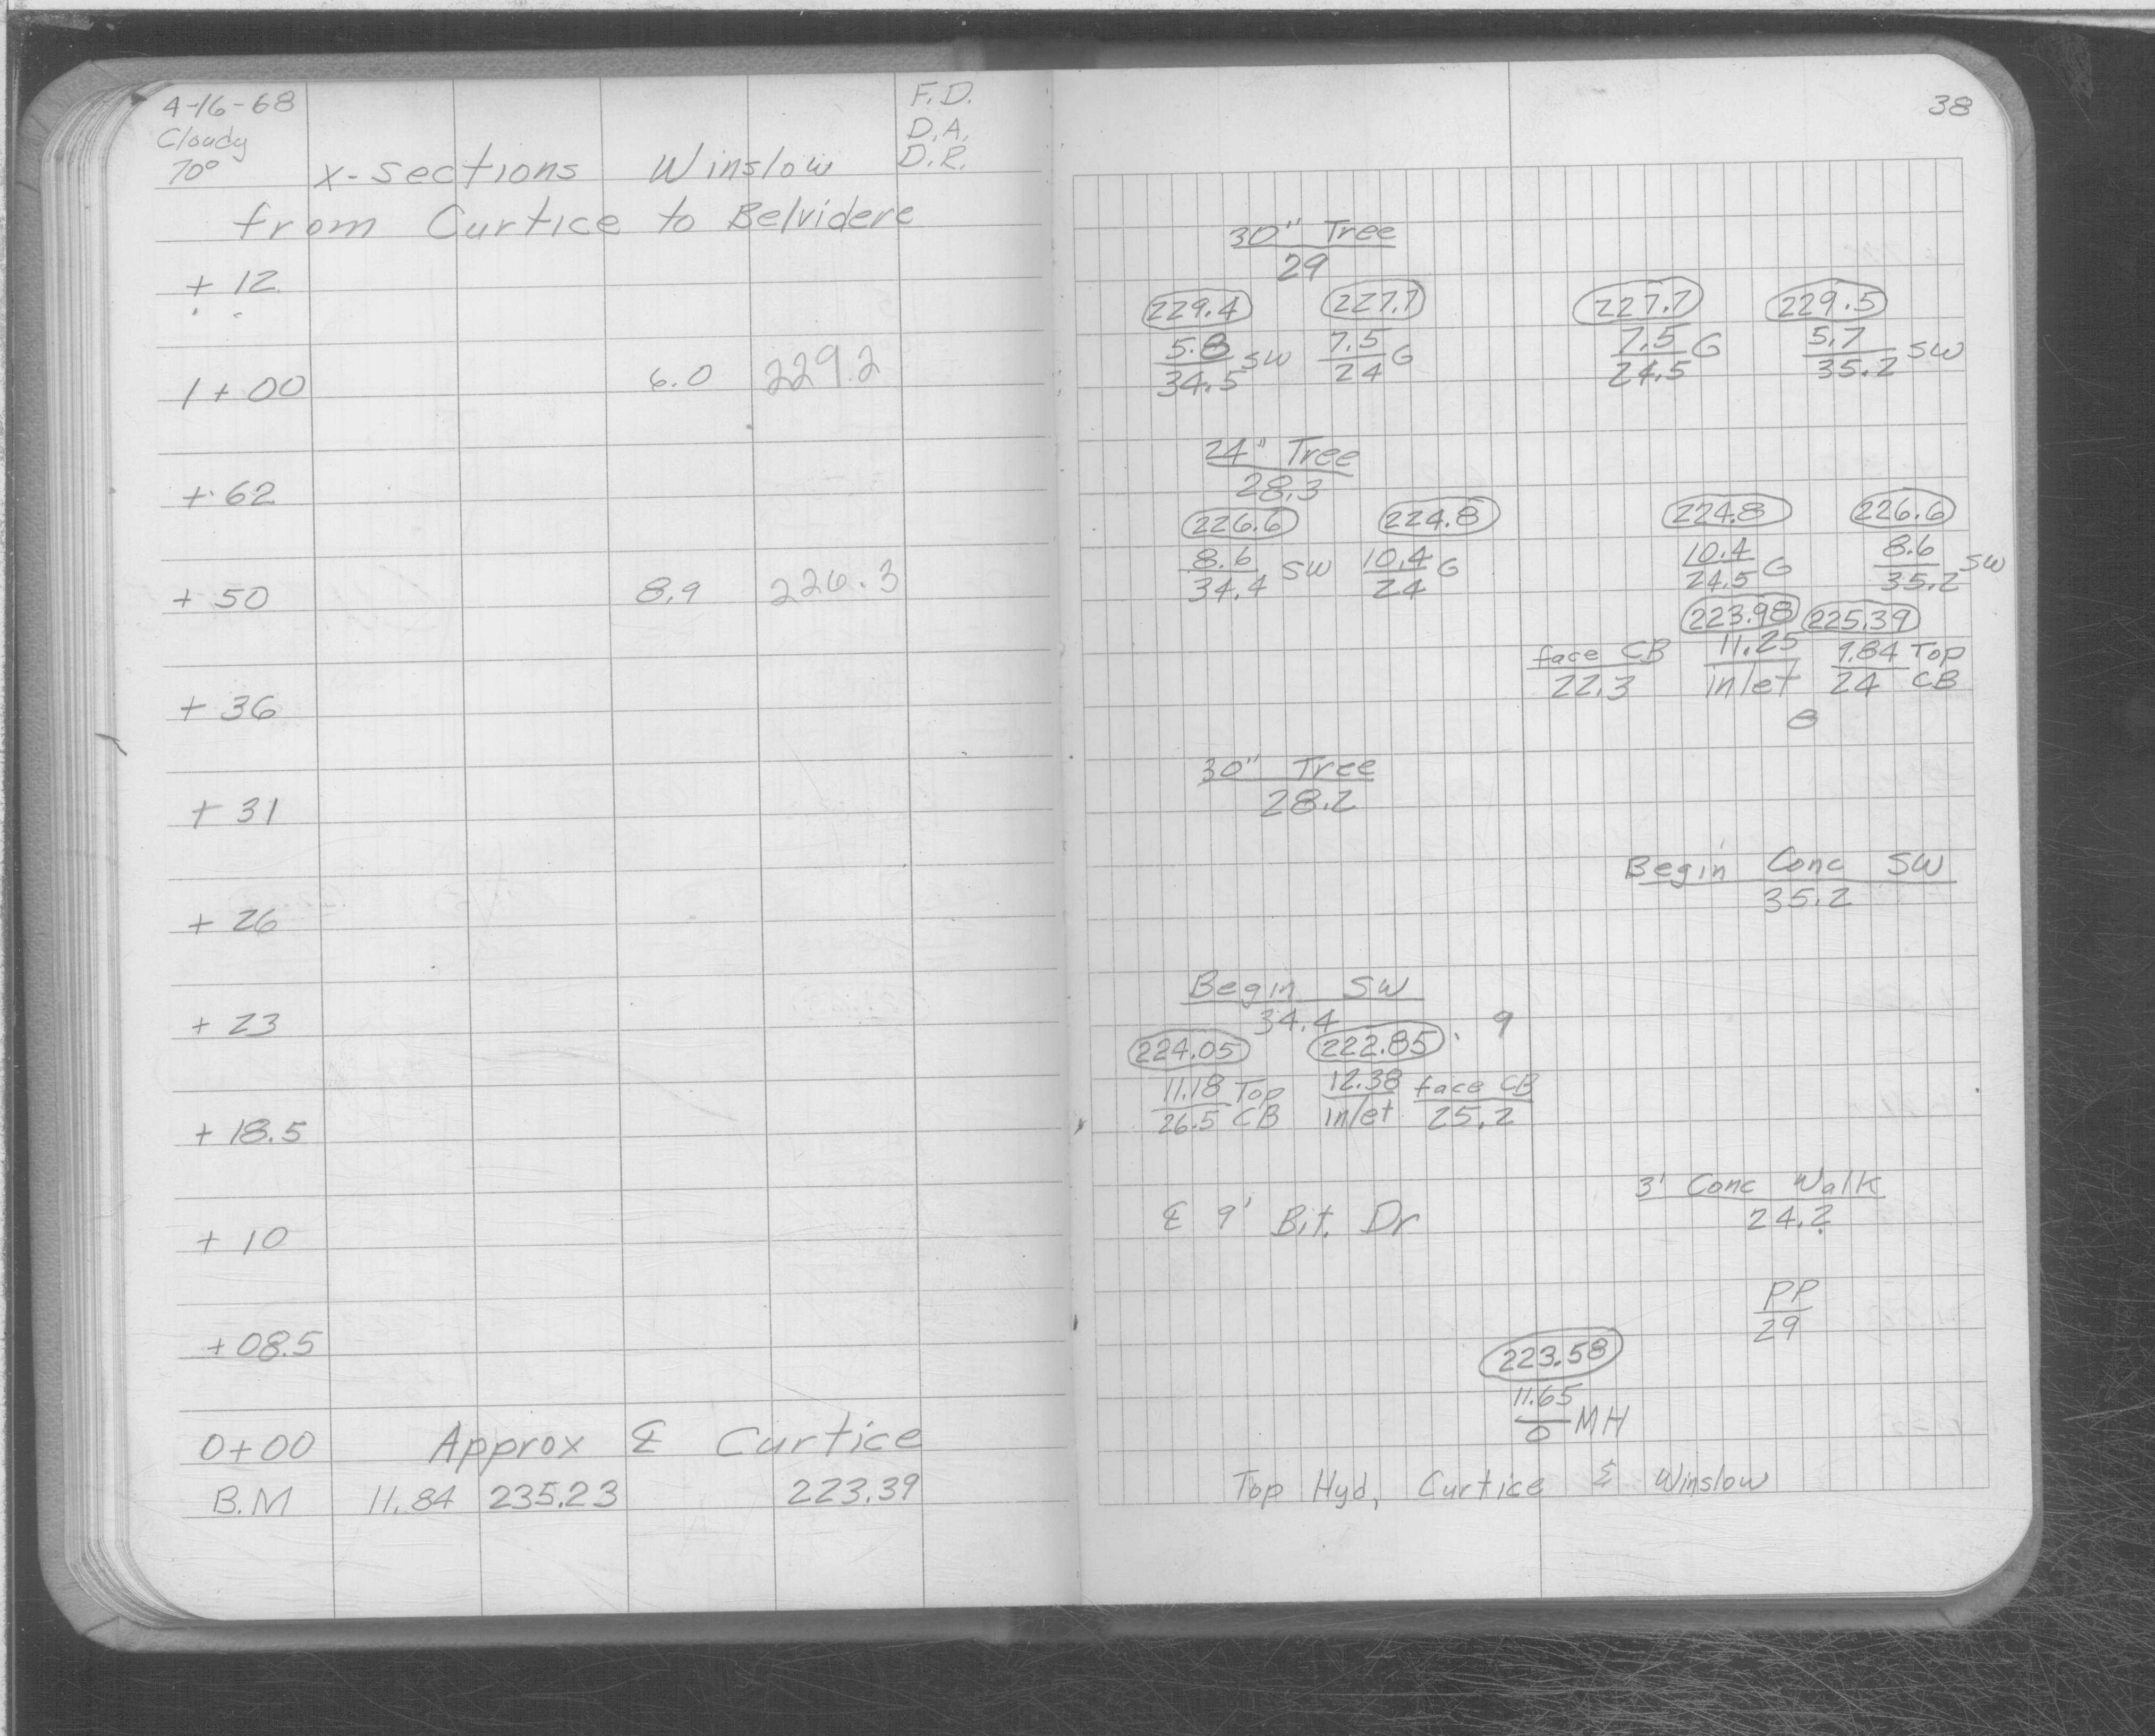 4-16-68
Cloudy
70°
F.D.
D.A.
D.R.
x-sections Winslow
from Curtice to Belvidere
+ 12
1 + 00 6.0 229.2
+ 62
+ 50 8.9 226.3
+ 36
+ 31
+ 26
+ 23
+ 18.5
+ 10
+ 08.5
0+00 Approx ℄ Curtice
B.M 11.84 235.23 223.39
38
30" Tree
29
229.4 227.7 227.7 229.5
5.8 SW 7.5 G 7.5 G 5.7 SW
34.5 24 24.5 35.2
24" Tree
28.3
226.6 224.8 224.8 226.6
8.6 SW 10.4 G 10.4 G 8.6 SW
34.4 24 24.5 35.2
223.98 225.39
face CB 11.25 9.84 Top
22.3 inlet 24 CB
8
30" Tree
28.2
Begin Conc SW
35.2
Begin SW
34.4
9
224.05 222.85
11.18 Top 12.38 face CB
26.5 CB inlet 25.2
℄ 9' Bit. Dr
3' Conc Walk
24.2
PP
29
223.58
11.65 MH
0
Top Hyd, Curtice & Winslow